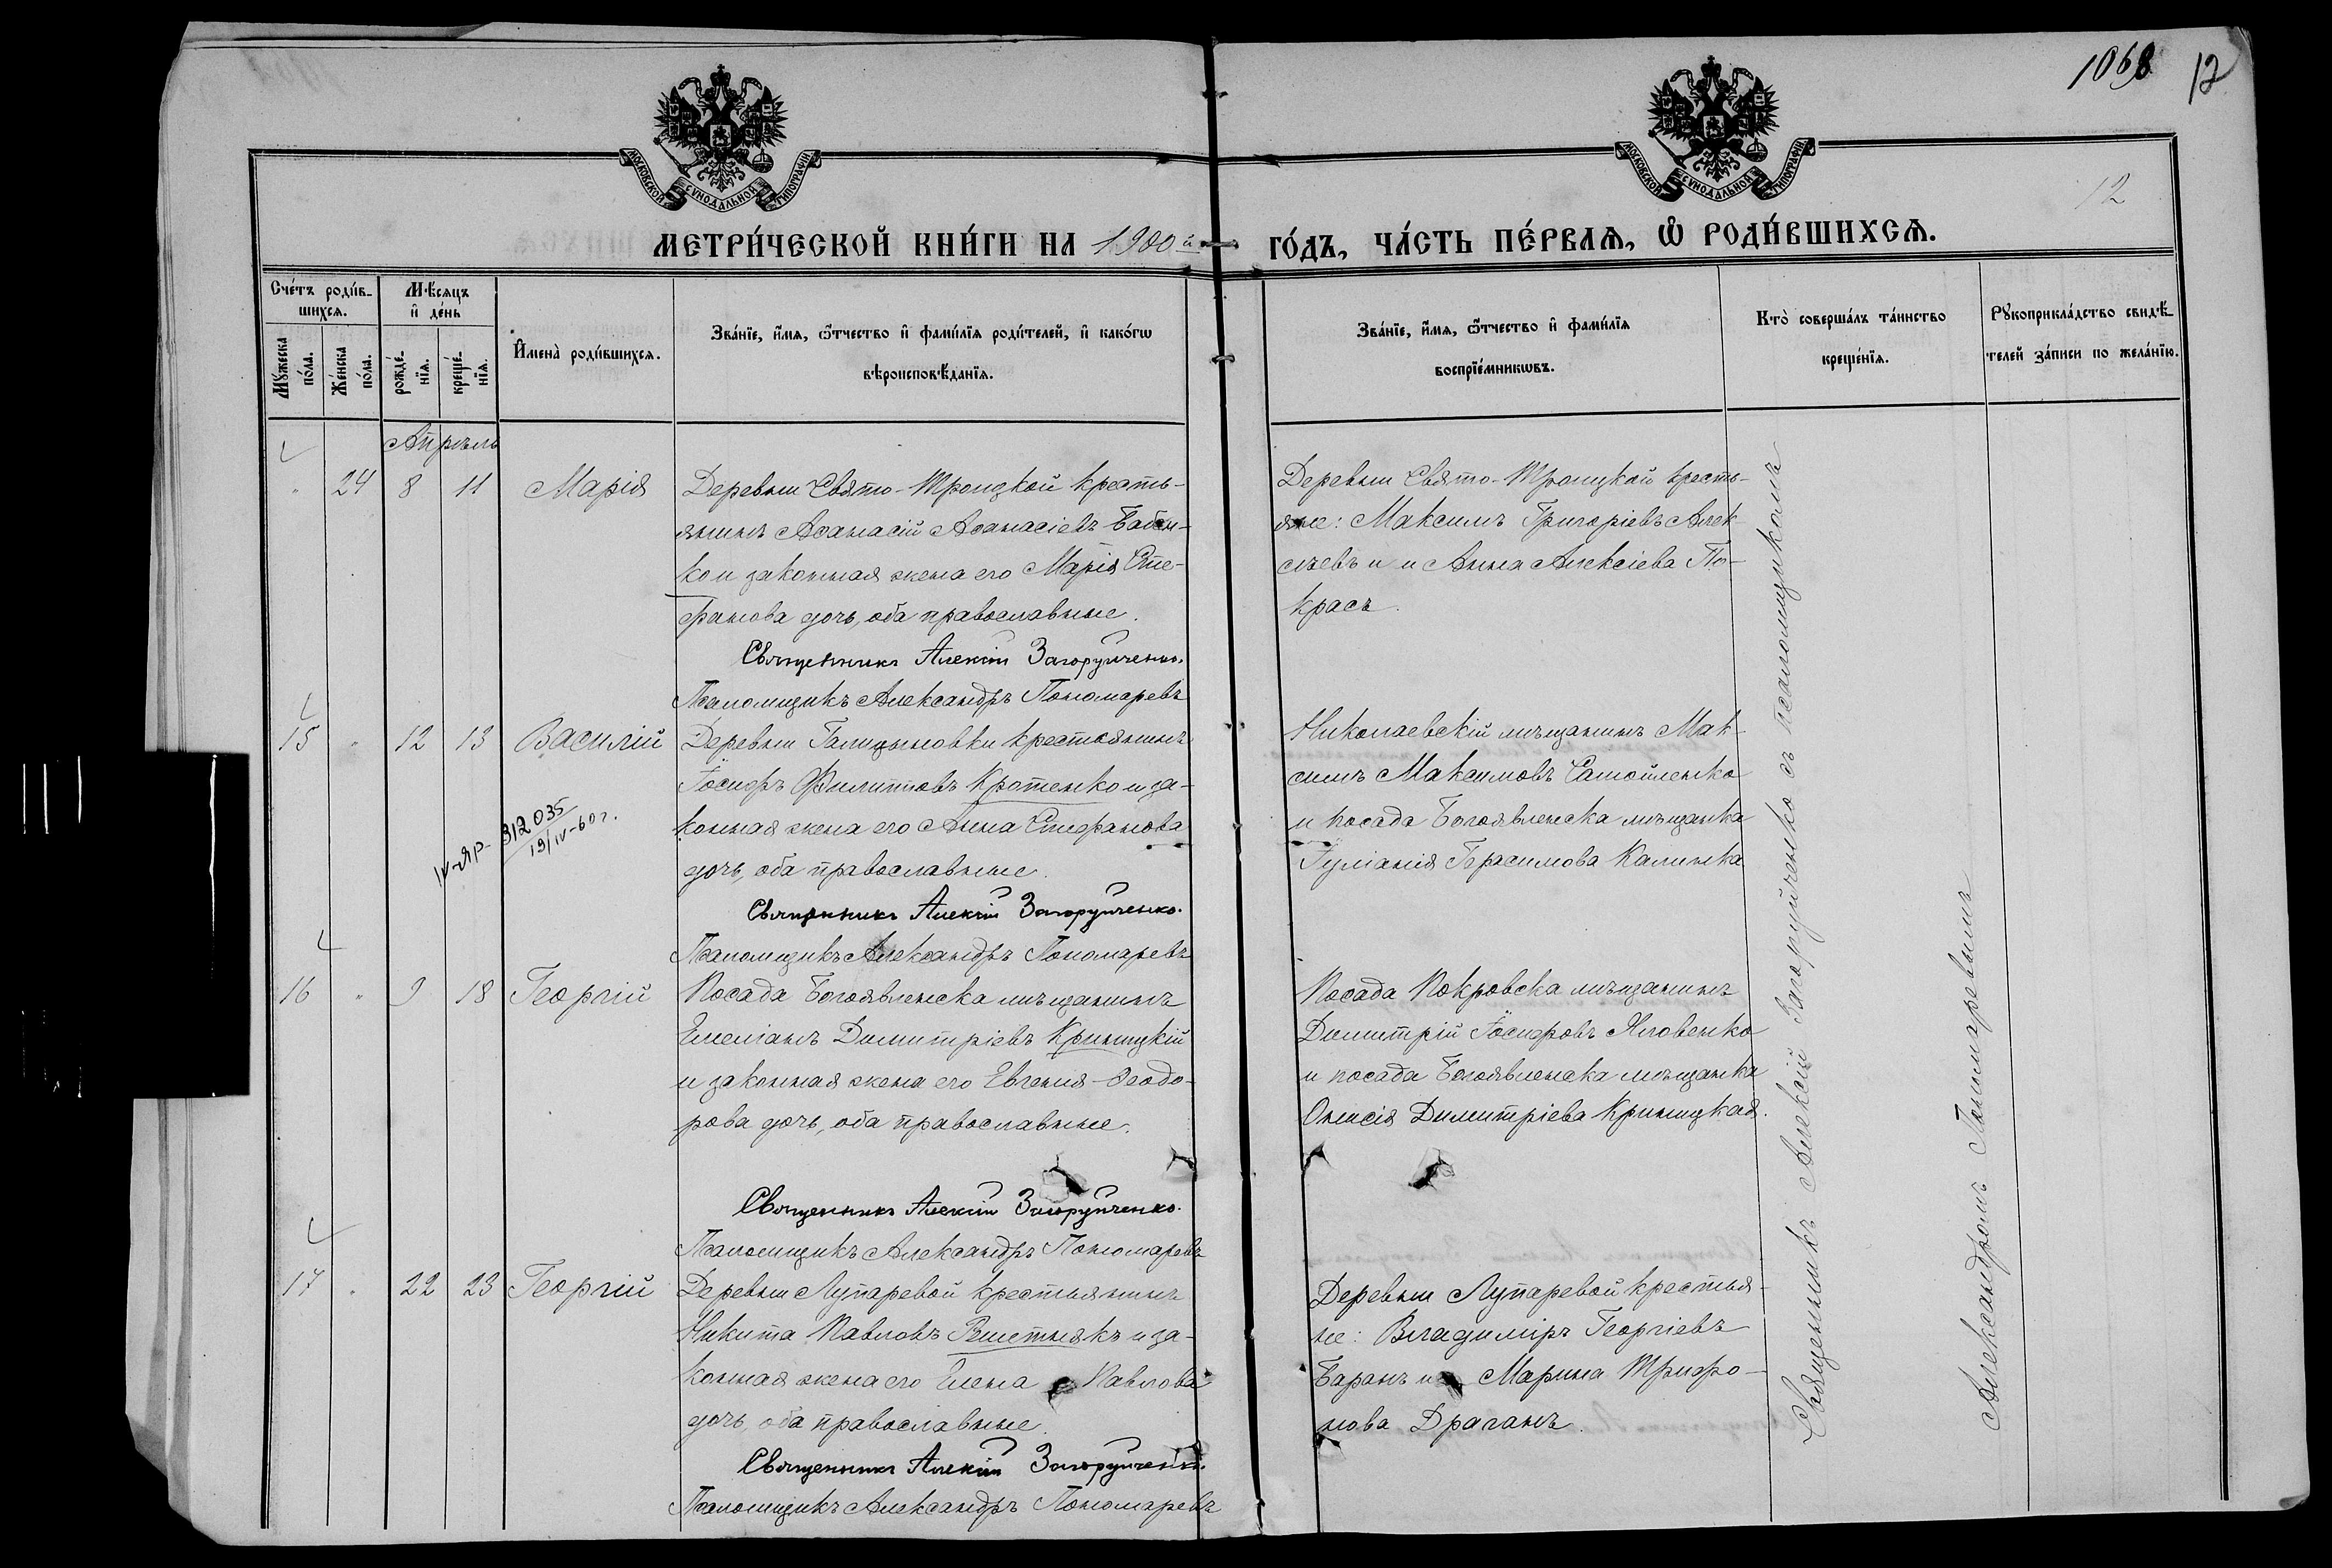 1068 12
12
МОСКОВСКОЙ СѴНОДАЛЬНОЙ ТИПОГРАФІИ
МОСКОВСКОЙ СѴНОДАЛЬНОЙ ТИПОГРАФІИ
МЕТРИ́ЧЕСКОЙ КНИ́ГИ НА 1900й ГО́ДЪ, ЧА́СТЬ ПЕ́РВАѦ, Ѽ РОДИ́ВШИХСѦ.
Сче́тъ роди́в-
шихсѧ.
Мꙋжеска по́ла.
Же́нска по́ла.
Мѣ́сѧцъ
и҆ де́нь
рожде́-
нїѧ.
креще́-
нїѧ.
И҆мена̀ роди́вшихсѧ.
Зва́нїе, и҆́мѧ, ѻ҆́тчество и҆ фами́лїѧ роди́телей, и҆ како́гѡ
вѣроисповѣ́данїѧ.
Зва́нїе, и҆́мѧ, ѻ҆́тчество и҆ фами́лїѧ
воспрїе́мникѡвъ.
Кто̀ соверша́лъ та́инство
креще́нїѧ.
Рꙋкоприкла́дство свидѣ́-
телей за́писи по жела́нїю.
Апрѣль
" 24 8 11 Марія
Деревни Свято-Троицкой кресть-
янинъ Аѳанасій Аѳанасіевъ Бабен-
ко и законная жена его Марія Сте-
фанова дочь, оба православные.
Священникъ Алексій Загоруйченко.
Псаломщикъ Александръ Пономаревъ
Деревни Свято-Троицкой кресть-
яне: Максимъ Григоріевъ Алек
сѣевъ и и Анна Алексіева По-
красъ.
15 " 12 13 Василій
Деревни Галицыновки крестьянинъ
Іосифъ Филипповъ Кротенко и за-
конная жена его Анна Стефанова
дочь, оба православные.
Священникъ Алексій Загоруйченко.
Псаломщикъ Александръ Пономаревъ
IV-ЯР- 312035
19/IV-60г.
Николаевскій мѣщанинъ Мак-
симъ Максимовъ Самойленко
и посада Богоявленска мѣщанка
Іуліанія Герасимова Калинка
16 " 9 18 Георгій
Посада Богоявленска мѣщанинъ
Емеліанъ Димитріевъ Криницкій
и законная жена его Евгенія Ѳеодо-
рова дочь, оба православные.
Священникъ Алексій Загоруйченко.
Псаломщикъ Александръ Пономаревъ
Посада Покровска мѣщанинъ
Димитрій Іосифовъ Яловенко
и посада Богоявленска мѣщанка
Онисія Димитріева Криницкая.
17 " 22 23 Георгій
Деревни Лупаревой крестьянинъ
Никита Павловъ Решетнякъ и за-
конная жена его Елена Павлова
дочь, оба православные.
Священникъ Алексій Загоруйченко.
Псаломщикъ Александръ Пономаревъ
Деревни Лупаревой крестья-
не: Владиміръ Георгіевъ
Баранъ и Марина Трифо-
нова Драганъ.
Священникъ Алексій Загоруйченко съ псаломщикомъ
Александромъ Пономаревымъ